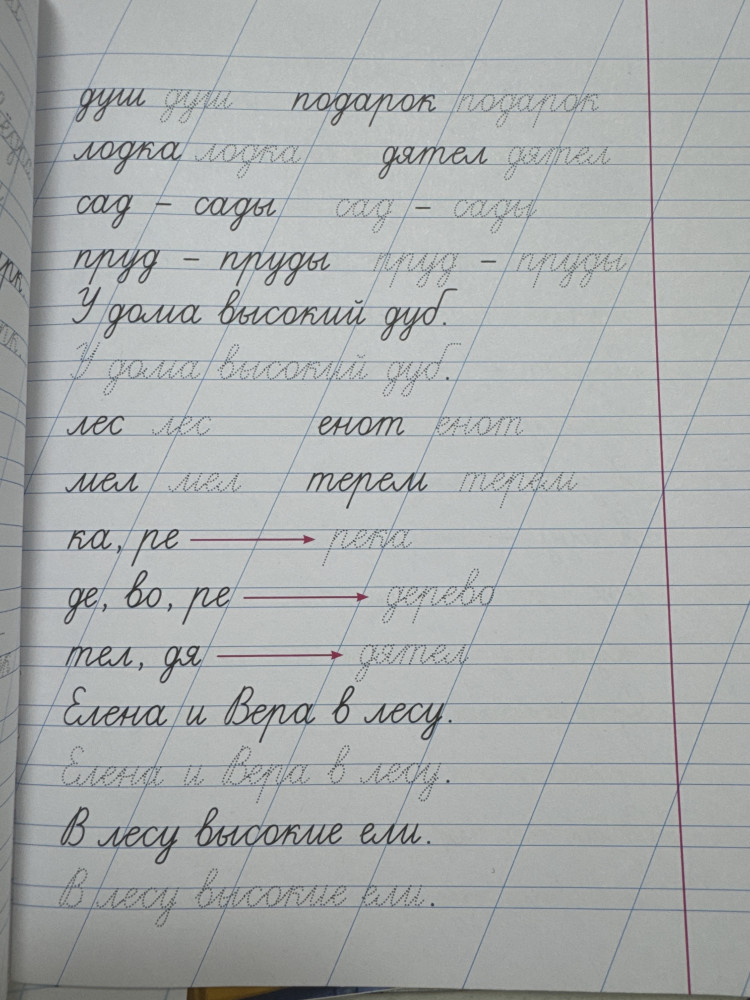 душ душ подарок подарок
лодка лодка дятел дятел
сад – сады сад – сады
пруд – пруды пруд – пруды
У дома высокий дуб.
У дома высокий дуб.
лес лес енот енот
мел мел терем терем
ка, ре → река
де, во, ре → дерево
тел, дя → дятел
Елена и Вера в лесу.
Елена и Вера в лесу.
В лесу высокие ели.
В лесу высокие ели.